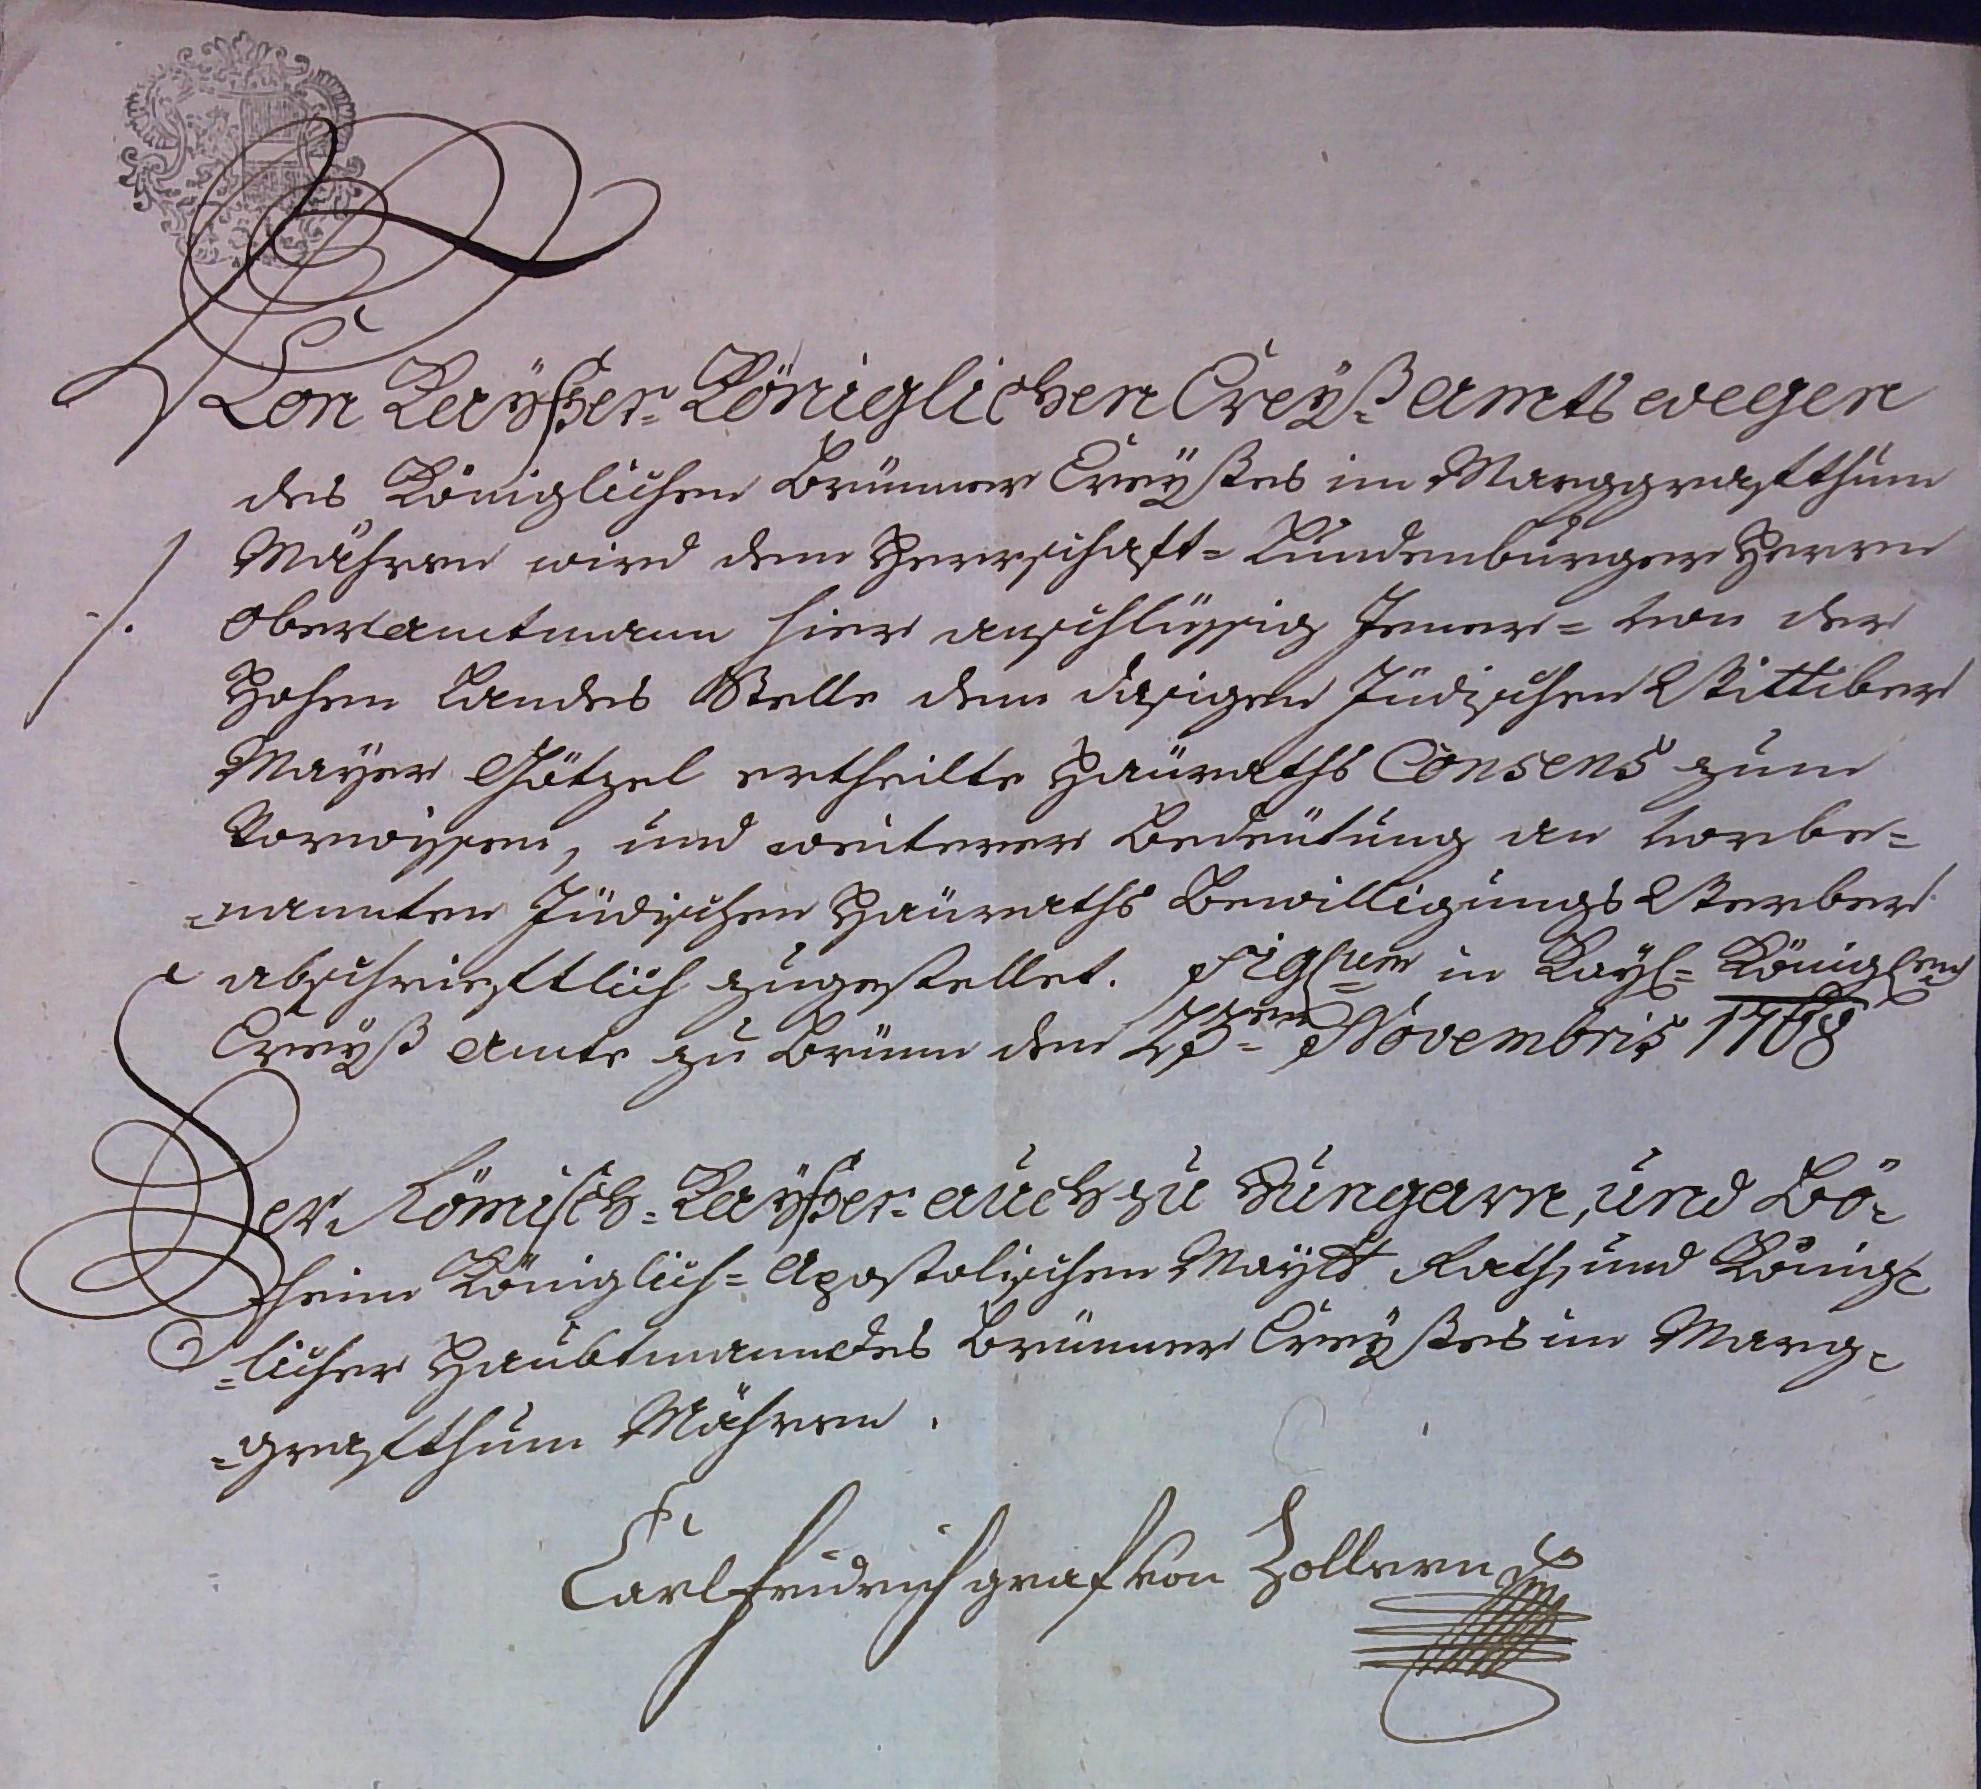 Von Kayßer-Königlichen Creyß amts wegen
des Königlichen Brünner Creyßes im Marggraffthum
Mähren wird dem Herrschaft-Lundenburger Herrn
Oberamtmann hier anschlüssig Jener- von der
Hohen Landes Stelle dem dasigen Jüdischen Wittiber
Mayer Götzel ertheilte Heüraths Consens zum
Vorwissen, und weiterer Bedeütung an vorbe-
-nannten Jüdischen Heüraths Bewilligungs Werber
abschriefftlich zugestellet. Sig:um in Kayl- Königlen
Creyß Amte zu Brünn den 23ten Novembris 1768
Der Römisch-Kayßer- auch zu Hungarn, und Bö-
heim Königlich-Apostolischen Maytt Rath, und König-
-licher Haubtmann des Brünner Creyßes im Marg-
-graffthum Mähren.
Carl fridrich graf von Zollern